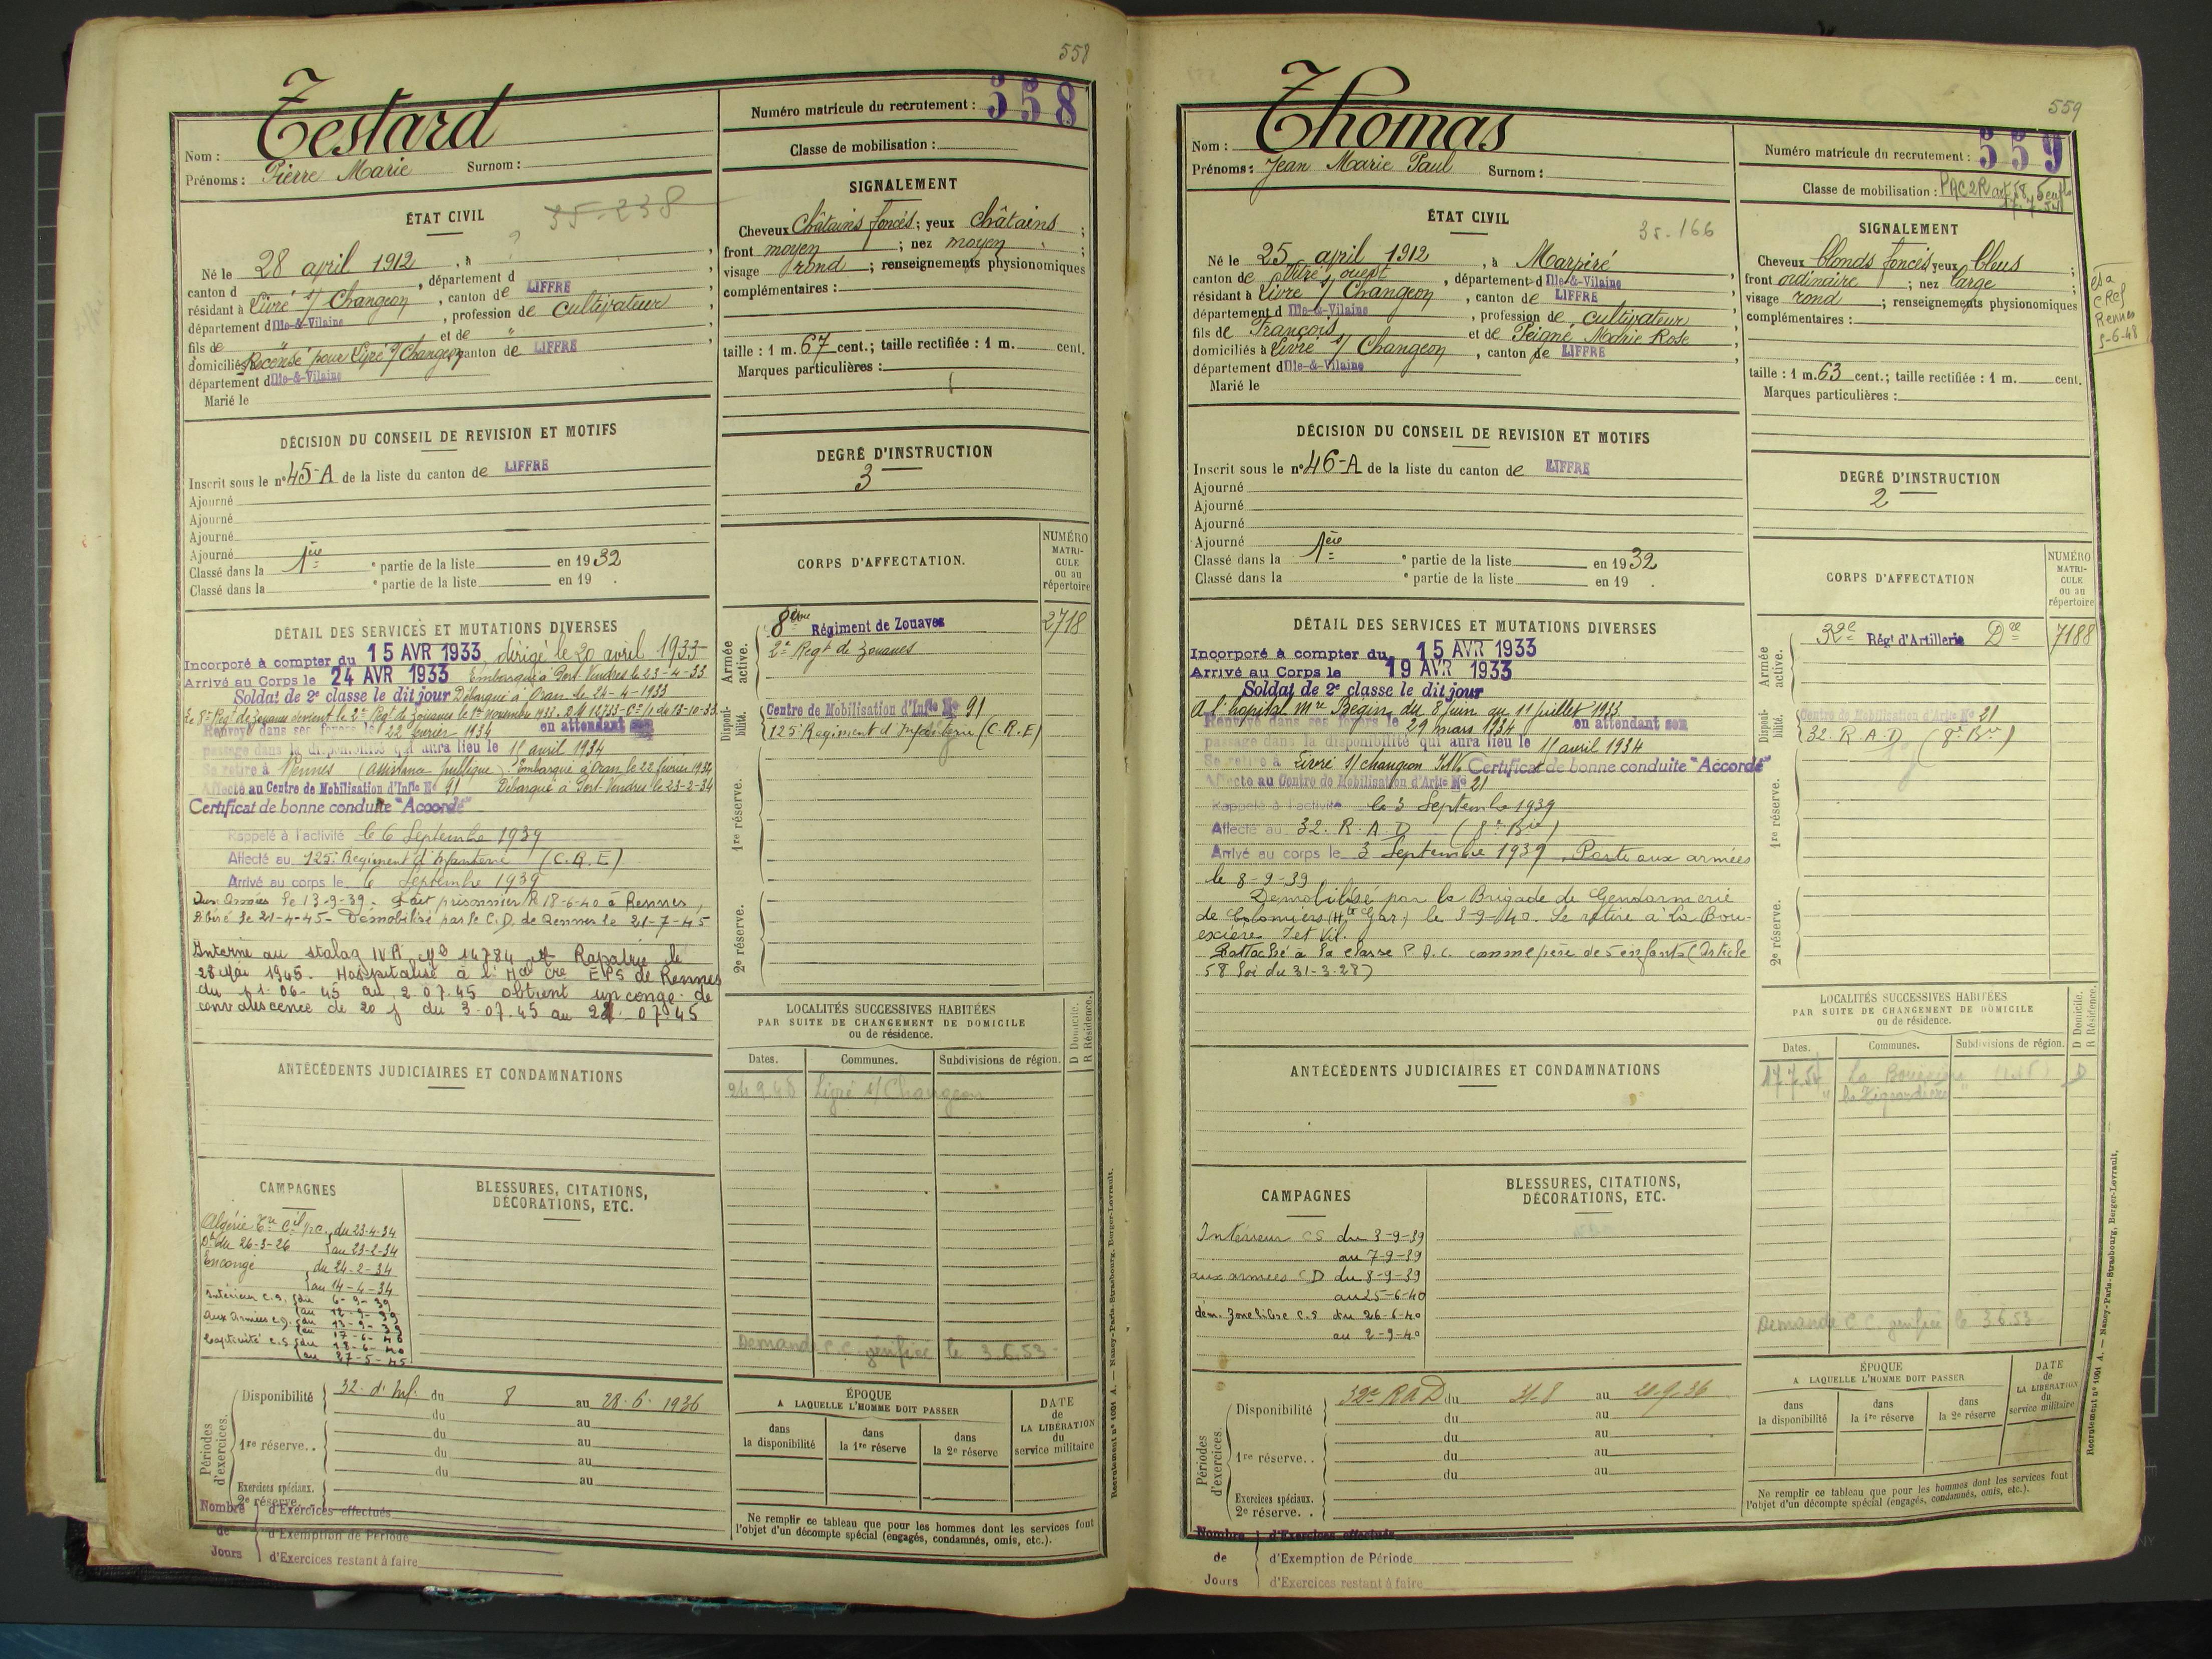 558
Testard
Nom :
Prénoms : Pierre Marie Surnom :
Numéro matricule du recrutement : 558
Classe de mobilisation :
ÉTAT CIVIL
35-238
?
Né le 28 april 1912, à ,
canton d , département d ,
résidant à Livré s/ Changeon, canton de LIFFRE ,
département d Ille-&-Vilaine , profession de cultivateur ,
fils de " et de " ,
domiciliés Recensé pour Livré s/ Changeon, canton de LIFFRE
département d Ille-&-Vilaine
Marié le
SIGNALEMENT
Cheveux Châtains foncés ; yeux Châtains ;
front moyen ; nez moyen ;
visage rond ; renseignements physionomiques
complémentaires :
taille : 1 m. 67 cent.; taille rectifiée : 1 m. cent.
Marques particulières :
DÉCISION DU CONSEIL DE REVISION ET MOTIFS
Inscrit sous le n° 45-A de la liste du canton de LIFFRE
Ajourné
Ajourné
Ajourné
Ajourné
Classé dans la 1ère e partie de la liste en 1932
Classé dans la e partie de la liste en 19 .
DEGRÉ D'INSTRUCTION
3
DÉTAIL DES SERVICES ET MUTATIONS DIVERSES
Incorporé à compter du 15 AVR 1933 dirigé le 20 avril 1933
Arrivé au Corps le 24 AVR 1933 Embarqué à Port Vendres le 23-4-33
Soldat de 2e classe le dit jour Débarqué à Oran le 24-4-1933
Le 8e Regt de Zouaves devient le 2e Regt de Zouaves le 1er novembre 1933. D.M 12733-C2/1 du 13-10-33
Renvoyé dans ses foyers le 22 fevrier 1934 en attendant son
passage dans la disponibilité qui aura lieu le 15 avril 1934
Se retire à Rennes (assistance publique). Embarqué à Oran le 22 fevrier 1934
Affecté au Centre de Mobilisation d'Infie No 91 Débarqué à Port-Vendres le 23-2-34
Certificat de bonne conduite "Accordé"
Rappelé à l'activité le 6 Septembre 1939
Affecté au 125e Regiment d'Infanterie (C.R.E)
Arrivé au corps le 6 Septembre 1939
Aux Armées le 13-9-39. Fait prisonnier le 18-6-40 à Rennes,
libéré le 21-4-45- Démobilisé par le C.D. de Rennes le 21-7-45
Interné au stalag IV B No 14784 Rapatrié le
28 Mai 1945. Hospitalisé à l'Hal Cre EPS de Rennes
du 11-06-45 au 2 07.45 obtient un congé de
convalescence de 20 j du 3-07.45 au 21-07-45
CORPS D'AFFECTATION.
NUMÉRO
MATRI-
CULE
ou au
répertoire
Armée active.
8ème Régiment de Zouaves 2718
2e Regt de Zouaves
Disponi-bilité.
Centre de Mobilisation d'Infie No 91
125e Regiment d'Infanterie (C.R.E)
1re réserve.
2e réserve.
ANTÉCÉDENTS JUDICIAIRES ET CONDAMNATIONS
LOCALITÉS SUCCESSIVES HABITÉES
PAR SUITE DE CHANGEMENT DE DOMICILE
ou de résidence.
D Domicile.
R Résidence.
Dates. Communes. Subdivisions de région.
24.9.48 Livré s/ Changeon
Demande C.C. vérifiée le 3.6.53
CAMPAGNES
Algérie du 23-4-34
Dt du 26-3-26 au 23-2-34
En congé du 24-2-34
au 14-4-34
Intérieur C.S. du 6-9-39
au 12-9-39
aux Armées C.D. du 13-9-39
au 17-6-40
Captivité C.S du 18-6-40
au 27-5-45
BLESSURES, CITATIONS,
DÉCORATIONS, ETC.
Périodes d'exercices.
Disponibilité 32. d'Inf. du 8 au 28.6.1936
du au
1re réserve.. du au
du au
du au
Exercices spéciaux.
2e réserve.
ÉPOQUE
A LAQUELLE L'HOMME DOIT PASSER
dans la disponibilité
dans la 1re réserve
dans la 2e réserve
DATE
de
LA LIBÉRATION
du
service militaire
Ne remplir ce tableau que pour les hommes dont les services font
l'objet d'un décompte spécial (engagés, condamnés, omis, etc.).
Nombre de Jours
d'Exercices effectués
d'Exemption de Période
d'Exercices restant à faire
Recrutement n° 1001 A. — Nancy-Paris-Strasbourg, Berger-Levrault.
559
Thomas
Nom :
Prénoms : Jean Marie Paul Surnom :
Numéro matricule du recrutement : 559
Classe de mobilisation : PAC2R art 58, 5 enfts
17.7.54
ÉTAT CIVIL
35-166
Né le 25 april 1912, à Marpiré
canton de Vitré ouest, département d Ille-&-Vilaine
résidant à Livré s/ Changeon, canton de LIFFRE
département d Ille-&-Vilaine , profession de cultivateur
fils de François et de Peigné Marie Rose
domiciliés à Livré s/ Changeon, canton de LIFFRE
département d Ille-&-Vilaine
Marié le
SIGNALEMENT
Cheveux blonds foncés yeux bleus ;
front ordinaire ; nez large ;
visage rond ; renseignements physionomiques
complémentaires :
taille : 1 m. 63 cent.; taille rectifiée : 1 m. cent.
Marques particulières :
CRef
Rennes
5-6-48
DÉCISION DU CONSEIL DE REVISION ET MOTIFS
Inscrit sous le n° 46-A de la liste du canton de LIFFRE
Ajourné
Ajourné
Ajourné
Ajourné
Classé dans la 1ère e partie de la liste en 1932
Classé dans la e partie de la liste en 19 .
DEGRÉ D'INSTRUCTION
2
DÉTAIL DES SERVICES ET MUTATIONS DIVERSES
Incorporé à compter du 15 AVR 1933
Arrivé au Corps le 19 AVR 1933
Soldat de 2e classe le dit jour
A l'hopital Mre Bégin du 8 juin au 11 juillet 1933
Renvoyé dans ses foyers le 29 mars 1934 en attendant son
passage dans la disponibilité qui aura lieu le 15 avril 1934
Se retire à Livré s/ changeon I&V. Certificat de bonne conduite "Accordé"
Affecté au Centre de Mobilisation d'Artie No 21
Rappelé à l'activité le 3 Septembre 1939
Affecté au 32. R.A.D (8e Bie)
Arrivé au corps le 3 Septembre 1939. Parti aux armées
le 8-9-39
Démobilisé par la Brigade de Gendarmerie
de Colomiers (Hte Gar.) le 3-9-40. Se retire à La Bou-
exière I et Vil.
Rattaché à la classe P.A.C. comme père de 5 enfants (Article
58 loi du 31-3-28)
CORPS D'AFFECTATION
NUMÉRO
MATRI-
CULE
ou au
répertoire
Armée active.
32e Régt d'Artillerie Dre 7188
Disponi-bilité.
Centre de Mobilisation d'Artie No 21
32 R.A.D (8e Bie)
1re réserve.
2e réserve.
ANTÉCÉDENTS JUDICIAIRES ET CONDAMNATIONS
LOCALITÉS SUCCESSIVES HABITÉES
PAR SUITE DE CHANGEMENT DE DOMICILE
ou de résidence.
D Domicile.
R Résidence.
Dates. Communes. Subdivisions de région.
17.7.54 La Bouexière (I&V) D
Demande C.C. vérifiée le 3.6.53
CAMPAGNES
Intérieur CS du 3-9-39
au 7-9-39
aux armées CD du 8-9-39
au 25-6-40
dem. Zone libre C.S du 26-6-40
au 2-9-40
BLESSURES, CITATIONS,
DÉCORATIONS, ETC.
Périodes d'exercices.
Disponibilité 32e RAD du 31-8 au 20.9.36
du au
du au
1re réserve.. du au
du au
Exercices spéciaux.
2e réserve. .
ÉPOQUE
A LAQUELLE L'HOMME DOIT PASSER
dans la disponibilité
dans la 1re réserve
dans la 2e réserve
DATE
de
LA LIBÉRATION
du
service militaire
Ne remplir ce tableau que pour les hommes dont les services font
l'objet d'un décompte spécial (engagés, condamnés, omis, etc.).
Nombre de Jours
d'Exercices effectués
d'Exemption de Période
d'Exercices restant à faire
Recrutement n° 1001 A. — Nancy-Paris-Strasbourg, Berger-Levrault.